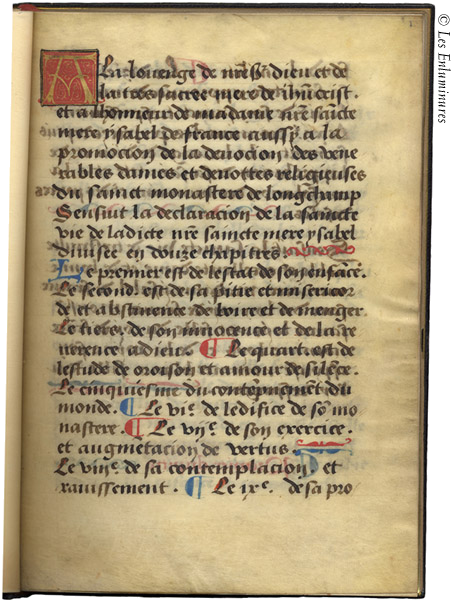 A La louenge de nr̃e sr̃ dieu et de
la tres sacree mere de ihũ crist.
et a lhonneur de madame nr̃e saĩcte
mere ysabel de france aussy a la
promocion de la deuocion des vene
rables dames et deuottes religieuses
du sainct monastere de longchamp
Sensuit la declaracion de la saincte
vie de ladicte nr̃e saincte mere ysabel
diuisee en douze chapitres.
Le premier est de lestat de son enfãce.
Le second. est de sa pitie et misericor
de et abstinence de boire et de menger.
Le tiers. de son innocence et de la re
uerence a dieu. ¶ Le quart. est de
lestude de oroison et amour de silẽce.
Le cinquiesme du contẽpnement du
monde. ¶ Le vi.e de ledifice de sõ mo
nastere. ¶ Le vii.e de son exercice.
et augmẽtacion de vertus.
Le viii.e de sa contemplacion. et
rauissement. ¶ Le ix.e de sa pro
© Les Enluminures